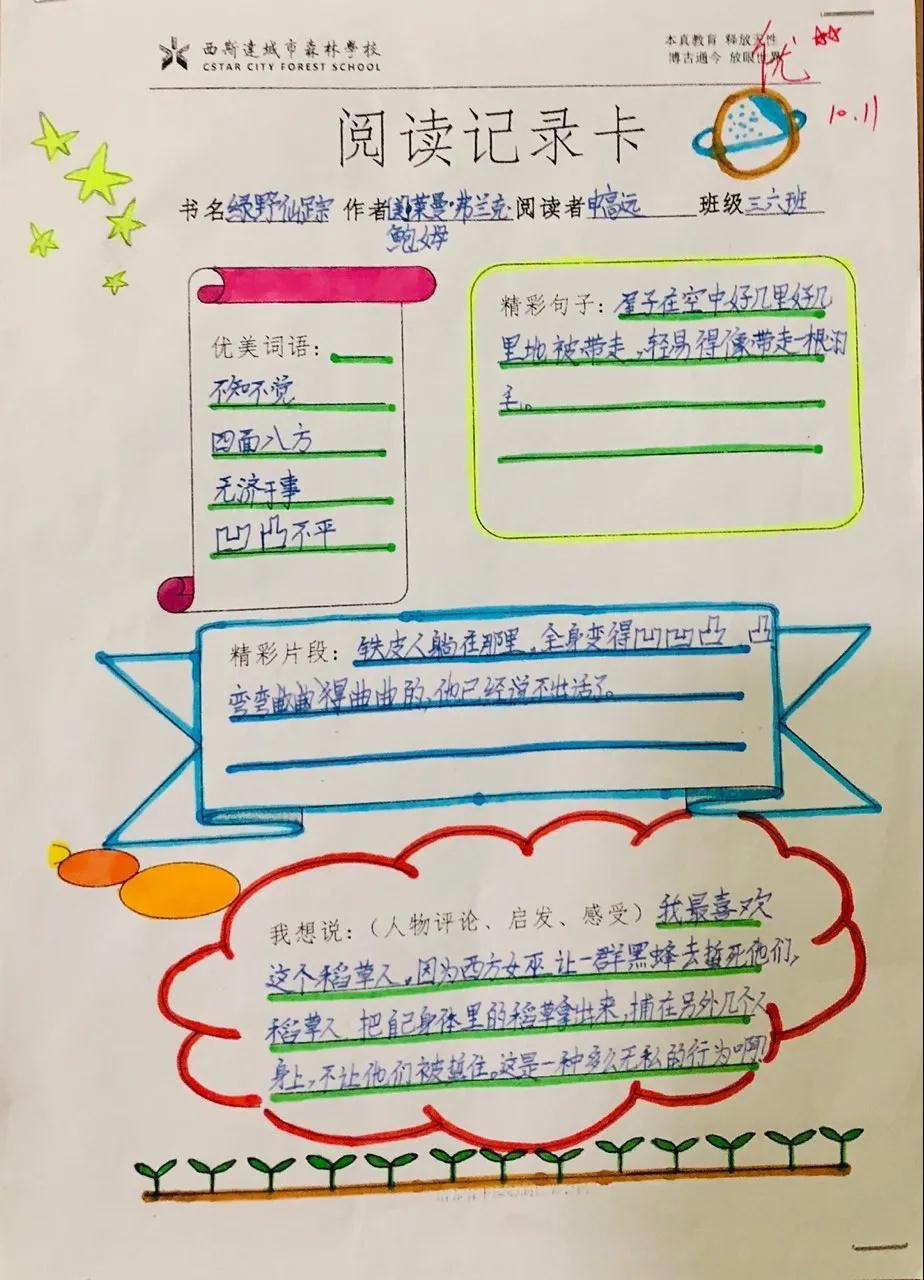 西斯达城市森林學校
CSTAR CITY FOREST SCHOOL
本真教育 释放天性
博古通今 放眼世界
优
10.11
阅读记录卡
书名 绿野仙踪 作者 莱曼·弗兰克 阅读者 申高远 班级 三六班
鲍姆
优美词语：
不知不觉
四面八方
无济于事
凹凸不平
精彩句子：屋子在空中好几里好几
里地被带走，轻易得像带走一根羽
毛。
精彩片段：铁皮人躺在那里，全身变得凹凹凸凸
弯弯曲曲得曲曲的，他已经说不出话了。
我想说：（人物评论、启发、感受）我最喜欢
这个稻草人，因为西方女巫让一群黑蜂去蜇死他们，
稻草人把自己身体里的稻草拿出来，捕在另外几个人
身上，不让他们被蜇住。这是一种多么无私的行为啊！